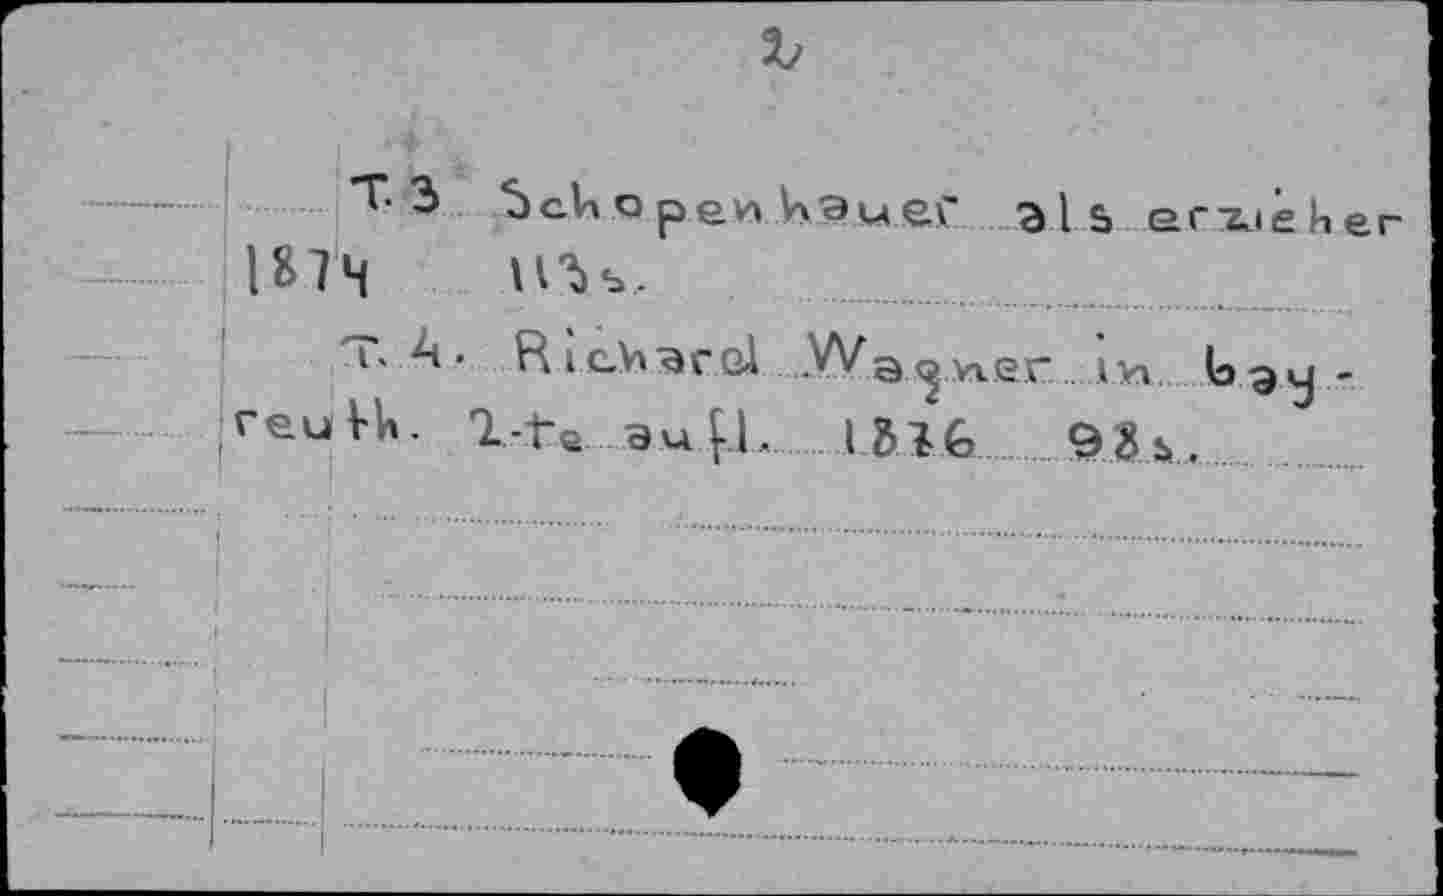 2
T. 3 Schopenhauer als erzieher
1874 113 s.
T. 4. Richard Wagner in bay-
reuth. 2-te aufl. 1876 98 s.